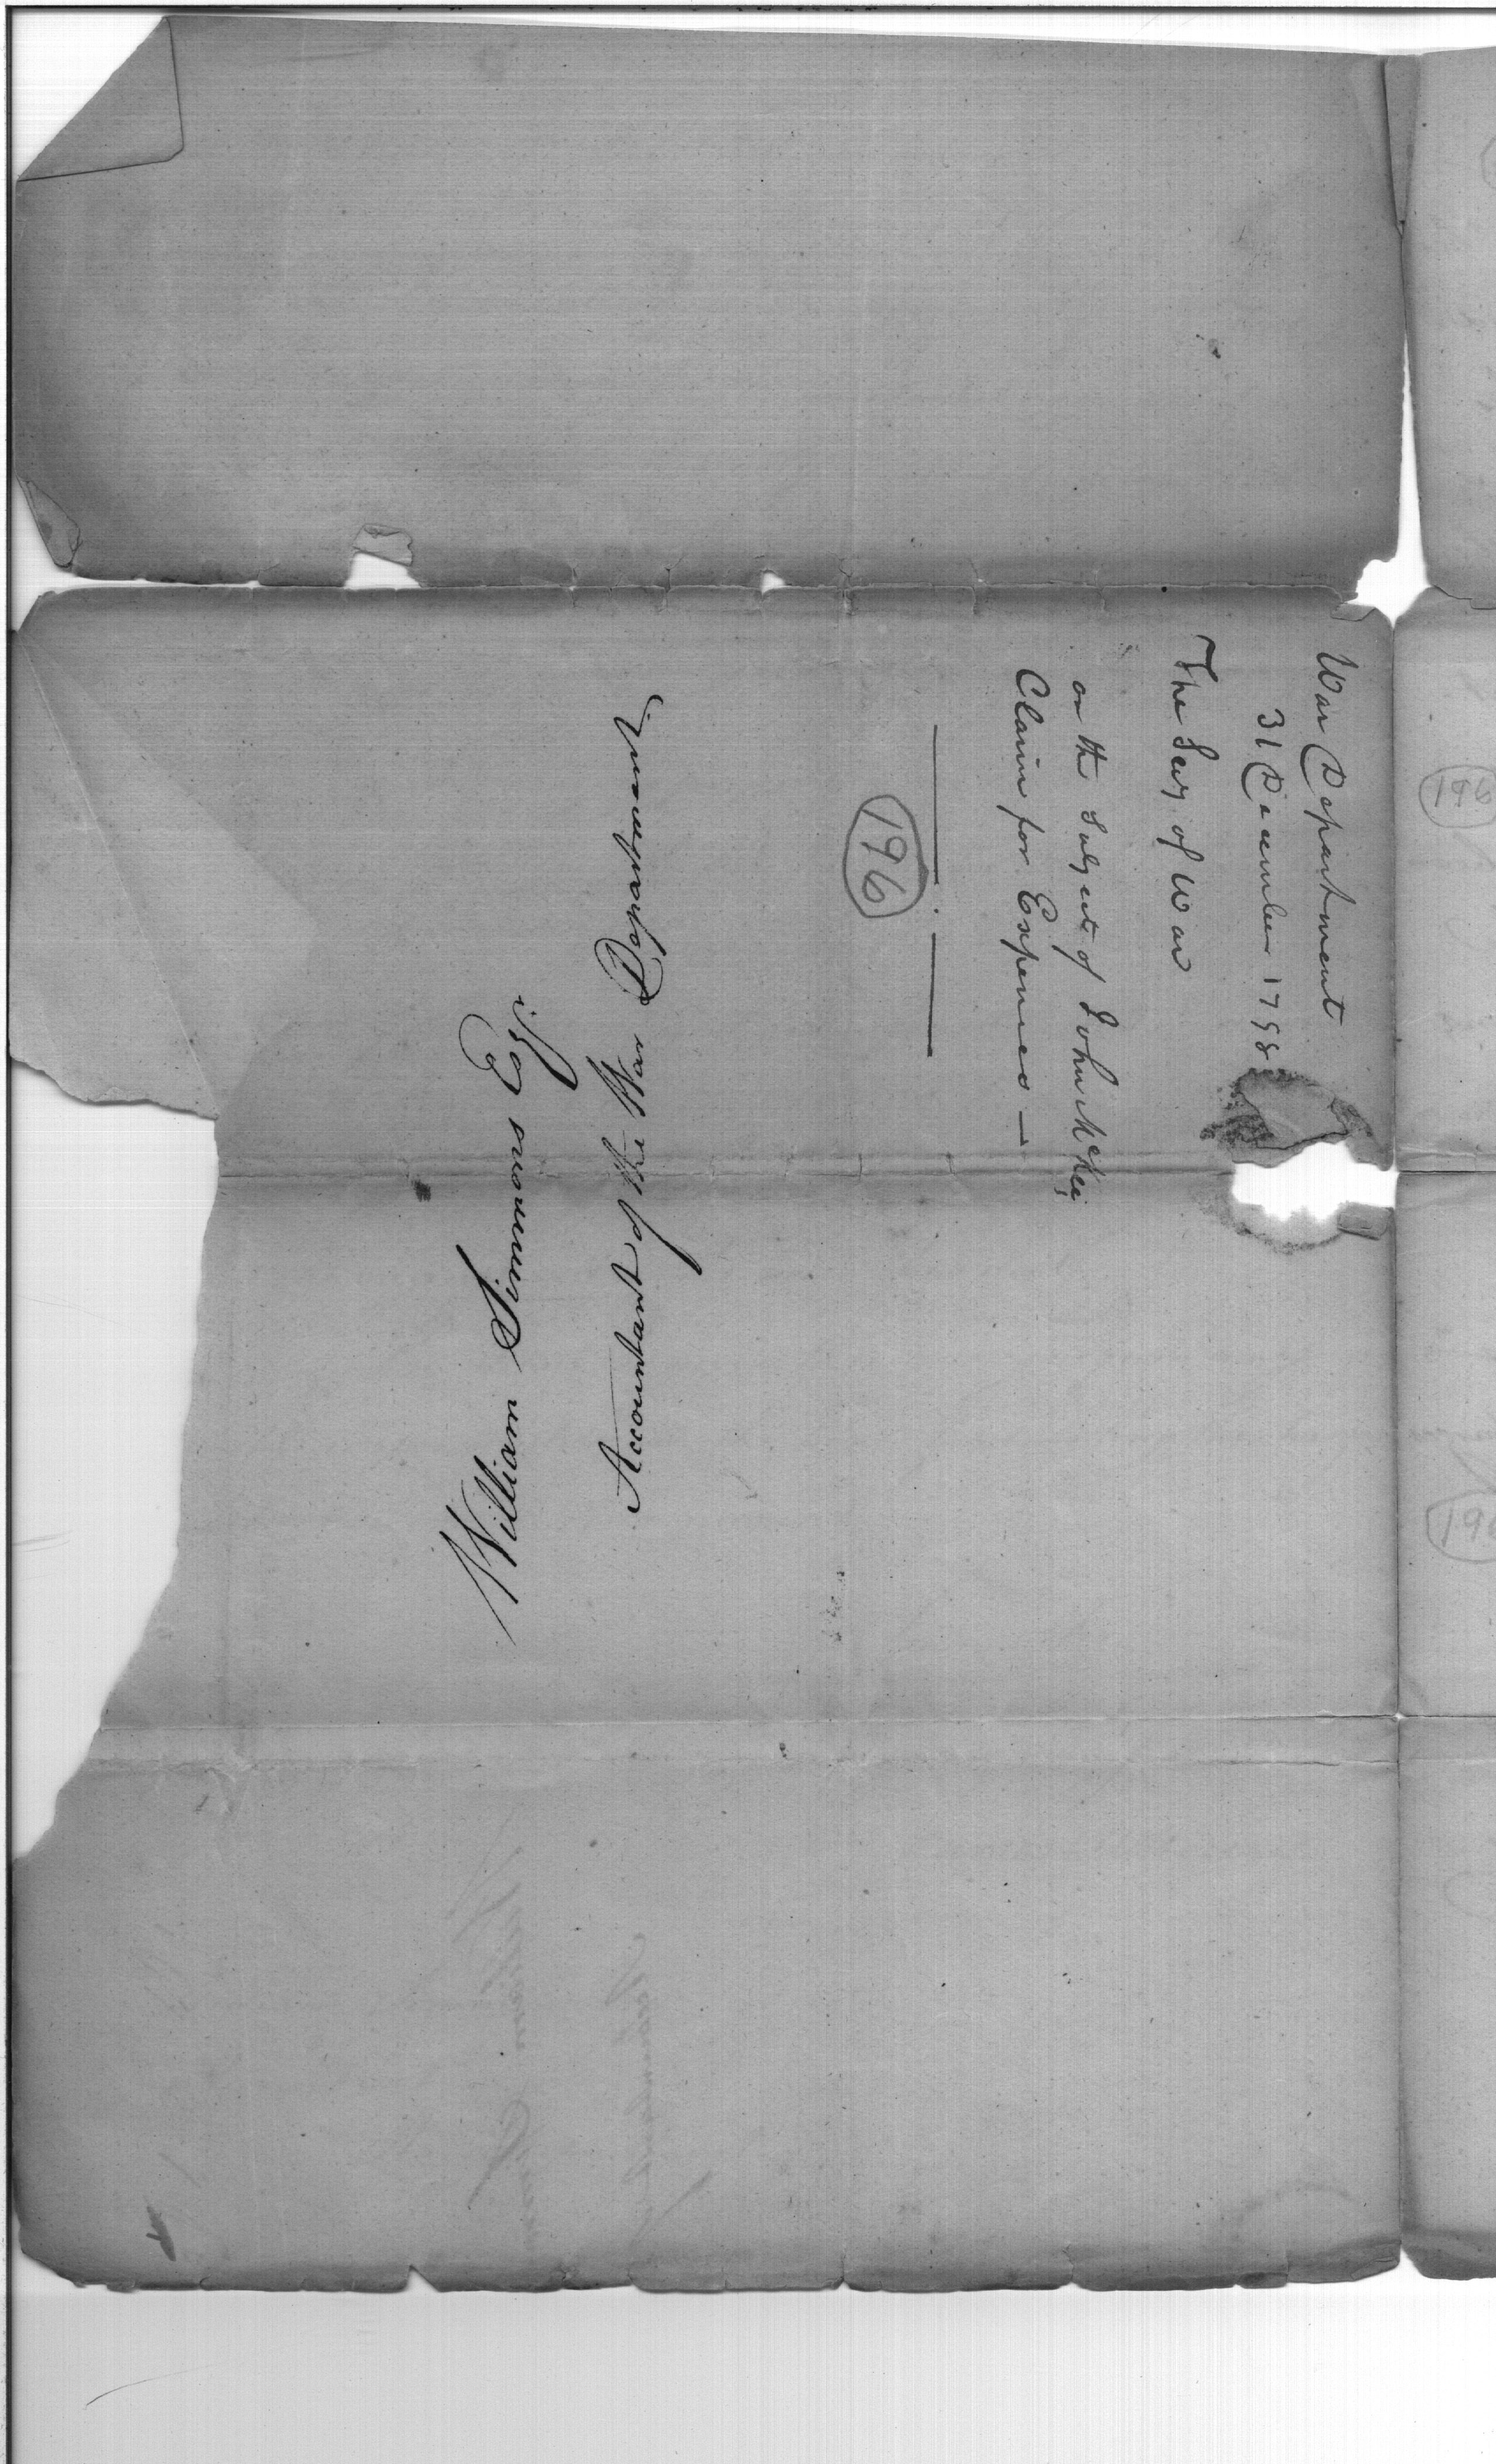 War Department
31 December 1798
The Secy of War
on the Subject of John McKee
Claim for Expences —
196
William Simmons Esqr.
Accountant of the War Department
196